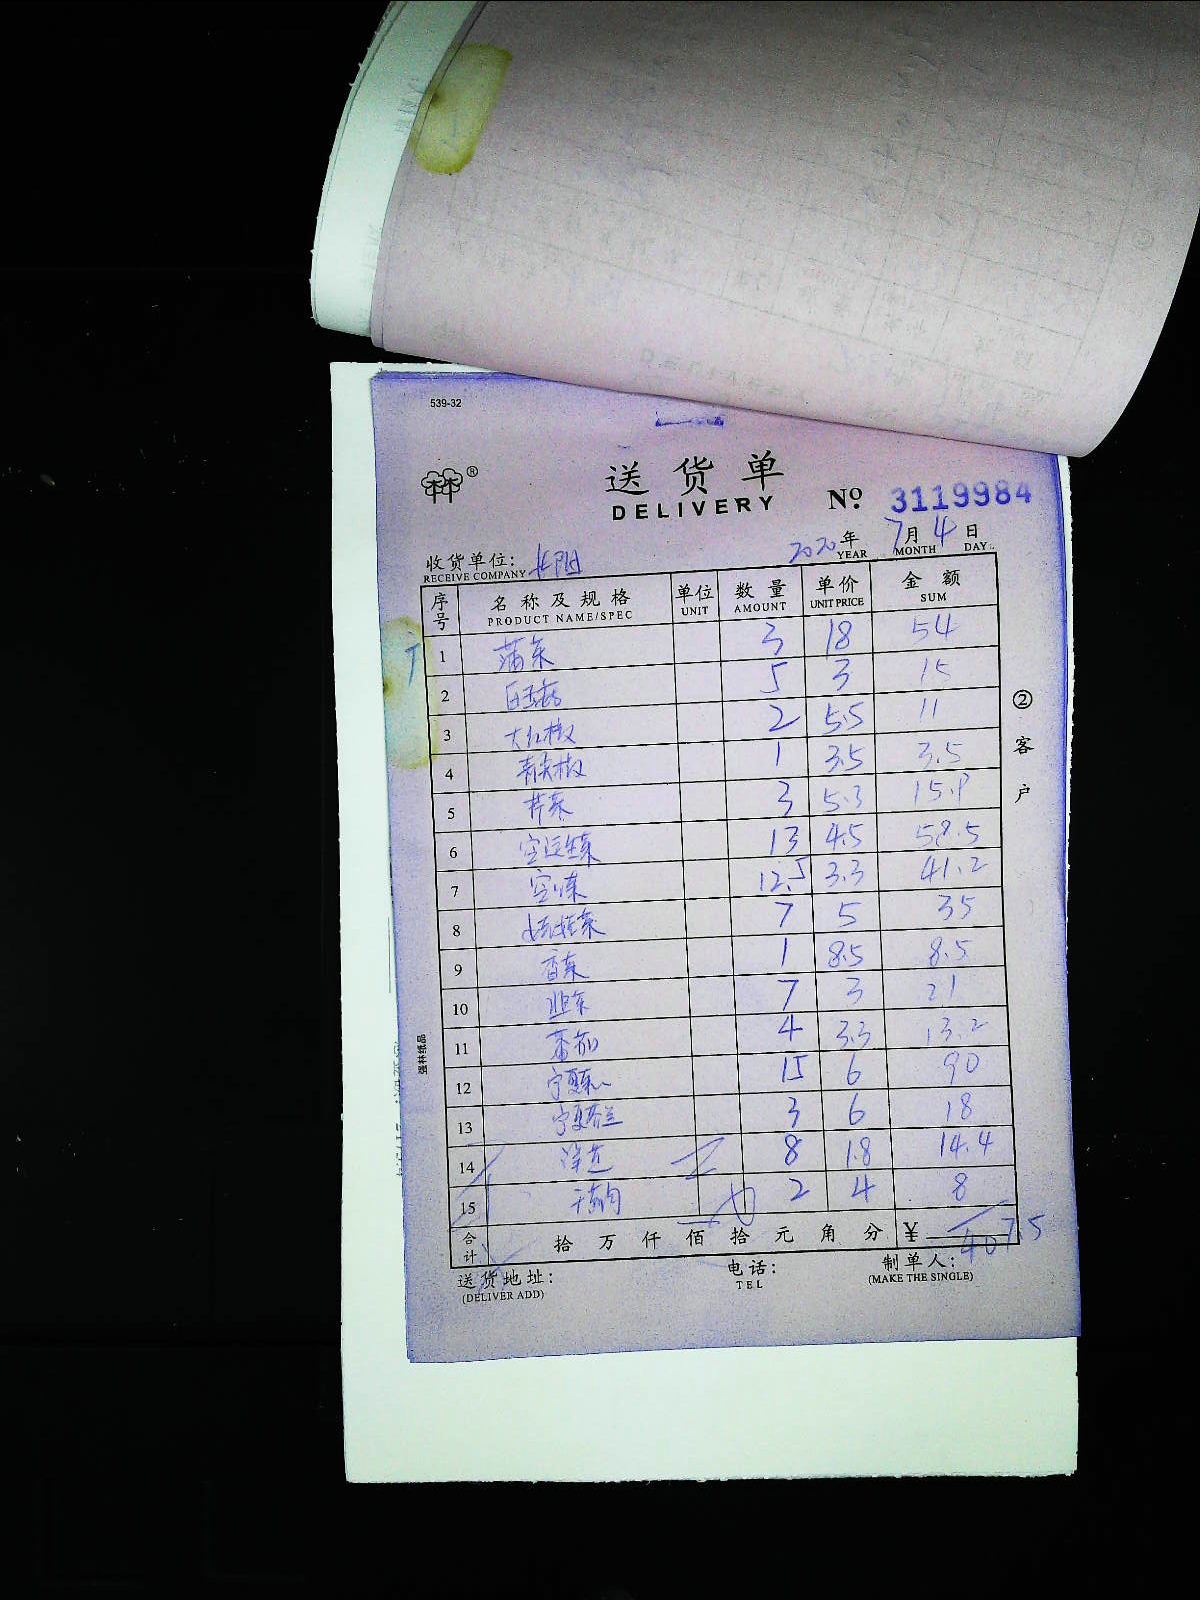 539-32
送货单
DELIVERY
№ 3119984
2020年 7月 4日
YEAR MONTH DAY
收货单位：
RECEIVE COMPANY
序号 名称及规格 单位 数量 单价 金额
PRODUCT NAME/SPEC UNIT AMOUNT UNIT PRICE SUM
1 3 18 54
2 5 3 15
3 大红椒 2 5.5 11
4 青尖椒 1 3.5 3.5
5 芥菜 3 5.3 15.9
6 13 4.5 58.5
7 12.5 3.3 41.2
8 7 5 35
9 香菜 1 8.5 8.5
10 韭菜 7 3 21
11 番茄 4 3.3 13.2
12 宁夏菜心 15 6 90
13 宁夏芥兰 3 6 18
14 8 1.8 14.4
15 2 4 8
合计 拾万仟佰拾元角分 ¥ 407.5
送货地址：
(DELIVER ADD)
电话：
TEL
制单人：
(MAKE THE SINGLE)
②客户
强林纸品